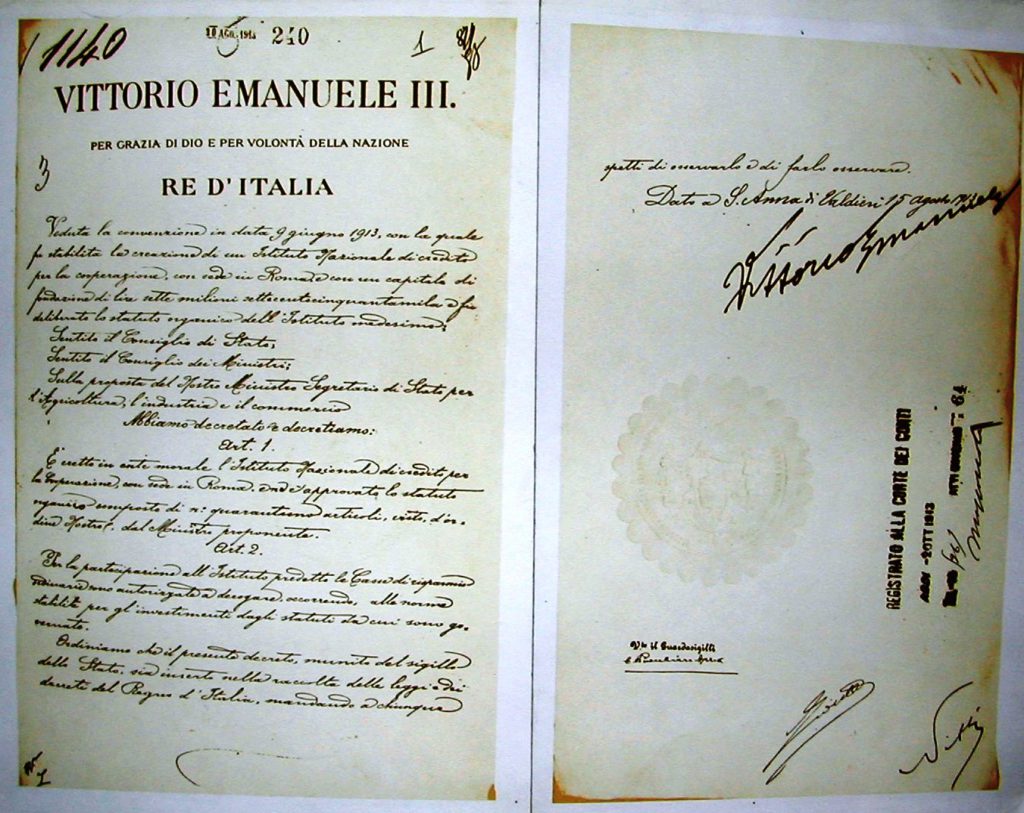 1140
10 AGO. 1913 240
1
VITTORIO EMANUELE III.
PER GRAZIA DI DIO E PER VOLONTÀ DELLA NAZIONE
3
RE D'ITALIA
Veduta la convenzione in data 9 giugno 1913, con la quale
fu stabilita la creazione di un Istituto Nazionale di credito
per la cooperazione, con sede in Roma e con un capitale di
fondazione di lire sette milioni settecentocinquantamila e fu
deliberato lo statuto organico dell'Istituto medesimo;
Sentito il Consiglio di Stato;
Sentito il Consiglio dei Ministri;
Sulla proposta del Nostro Ministro Segretario di Stato per
l'Agricoltura, l'industria e il commercio
Abbiamo decretato e decretiamo:
Art. 1.
È eretto in ente morale l'Istituto Nazionale di credito per
la Cooperazione, con sede in Roma, ed è approvato lo statuto
organico composto di n: quarantuno articoli, visto, d'or-
dine Nostro, dal Ministro proponente.
Art. 2.
Per la partecipazione all'Istituto predetto le Casse di risparmio
ordinarie sono autorizzate a derogare, occorrendo, alle norme
stabilite per gl'investimenti dagli statuti da cui sono go-
vernate.
Ordiniamo che il presente decreto, munito del sigillo
dello Stato, sia inserto nella raccolta delle leggi e dei
decreti del Regno d'Italia, mandando a chiunque
1
spetti di osservarlo e di farlo osservare.
Dato a S. Anna di Valdieri 15 agosto
Vittorio Emanuele
REGISTRATO ALLA CORTE DEI CONTI
ADDI -2 OTT 1913
64
Vto il Guardasigilli
Nitti